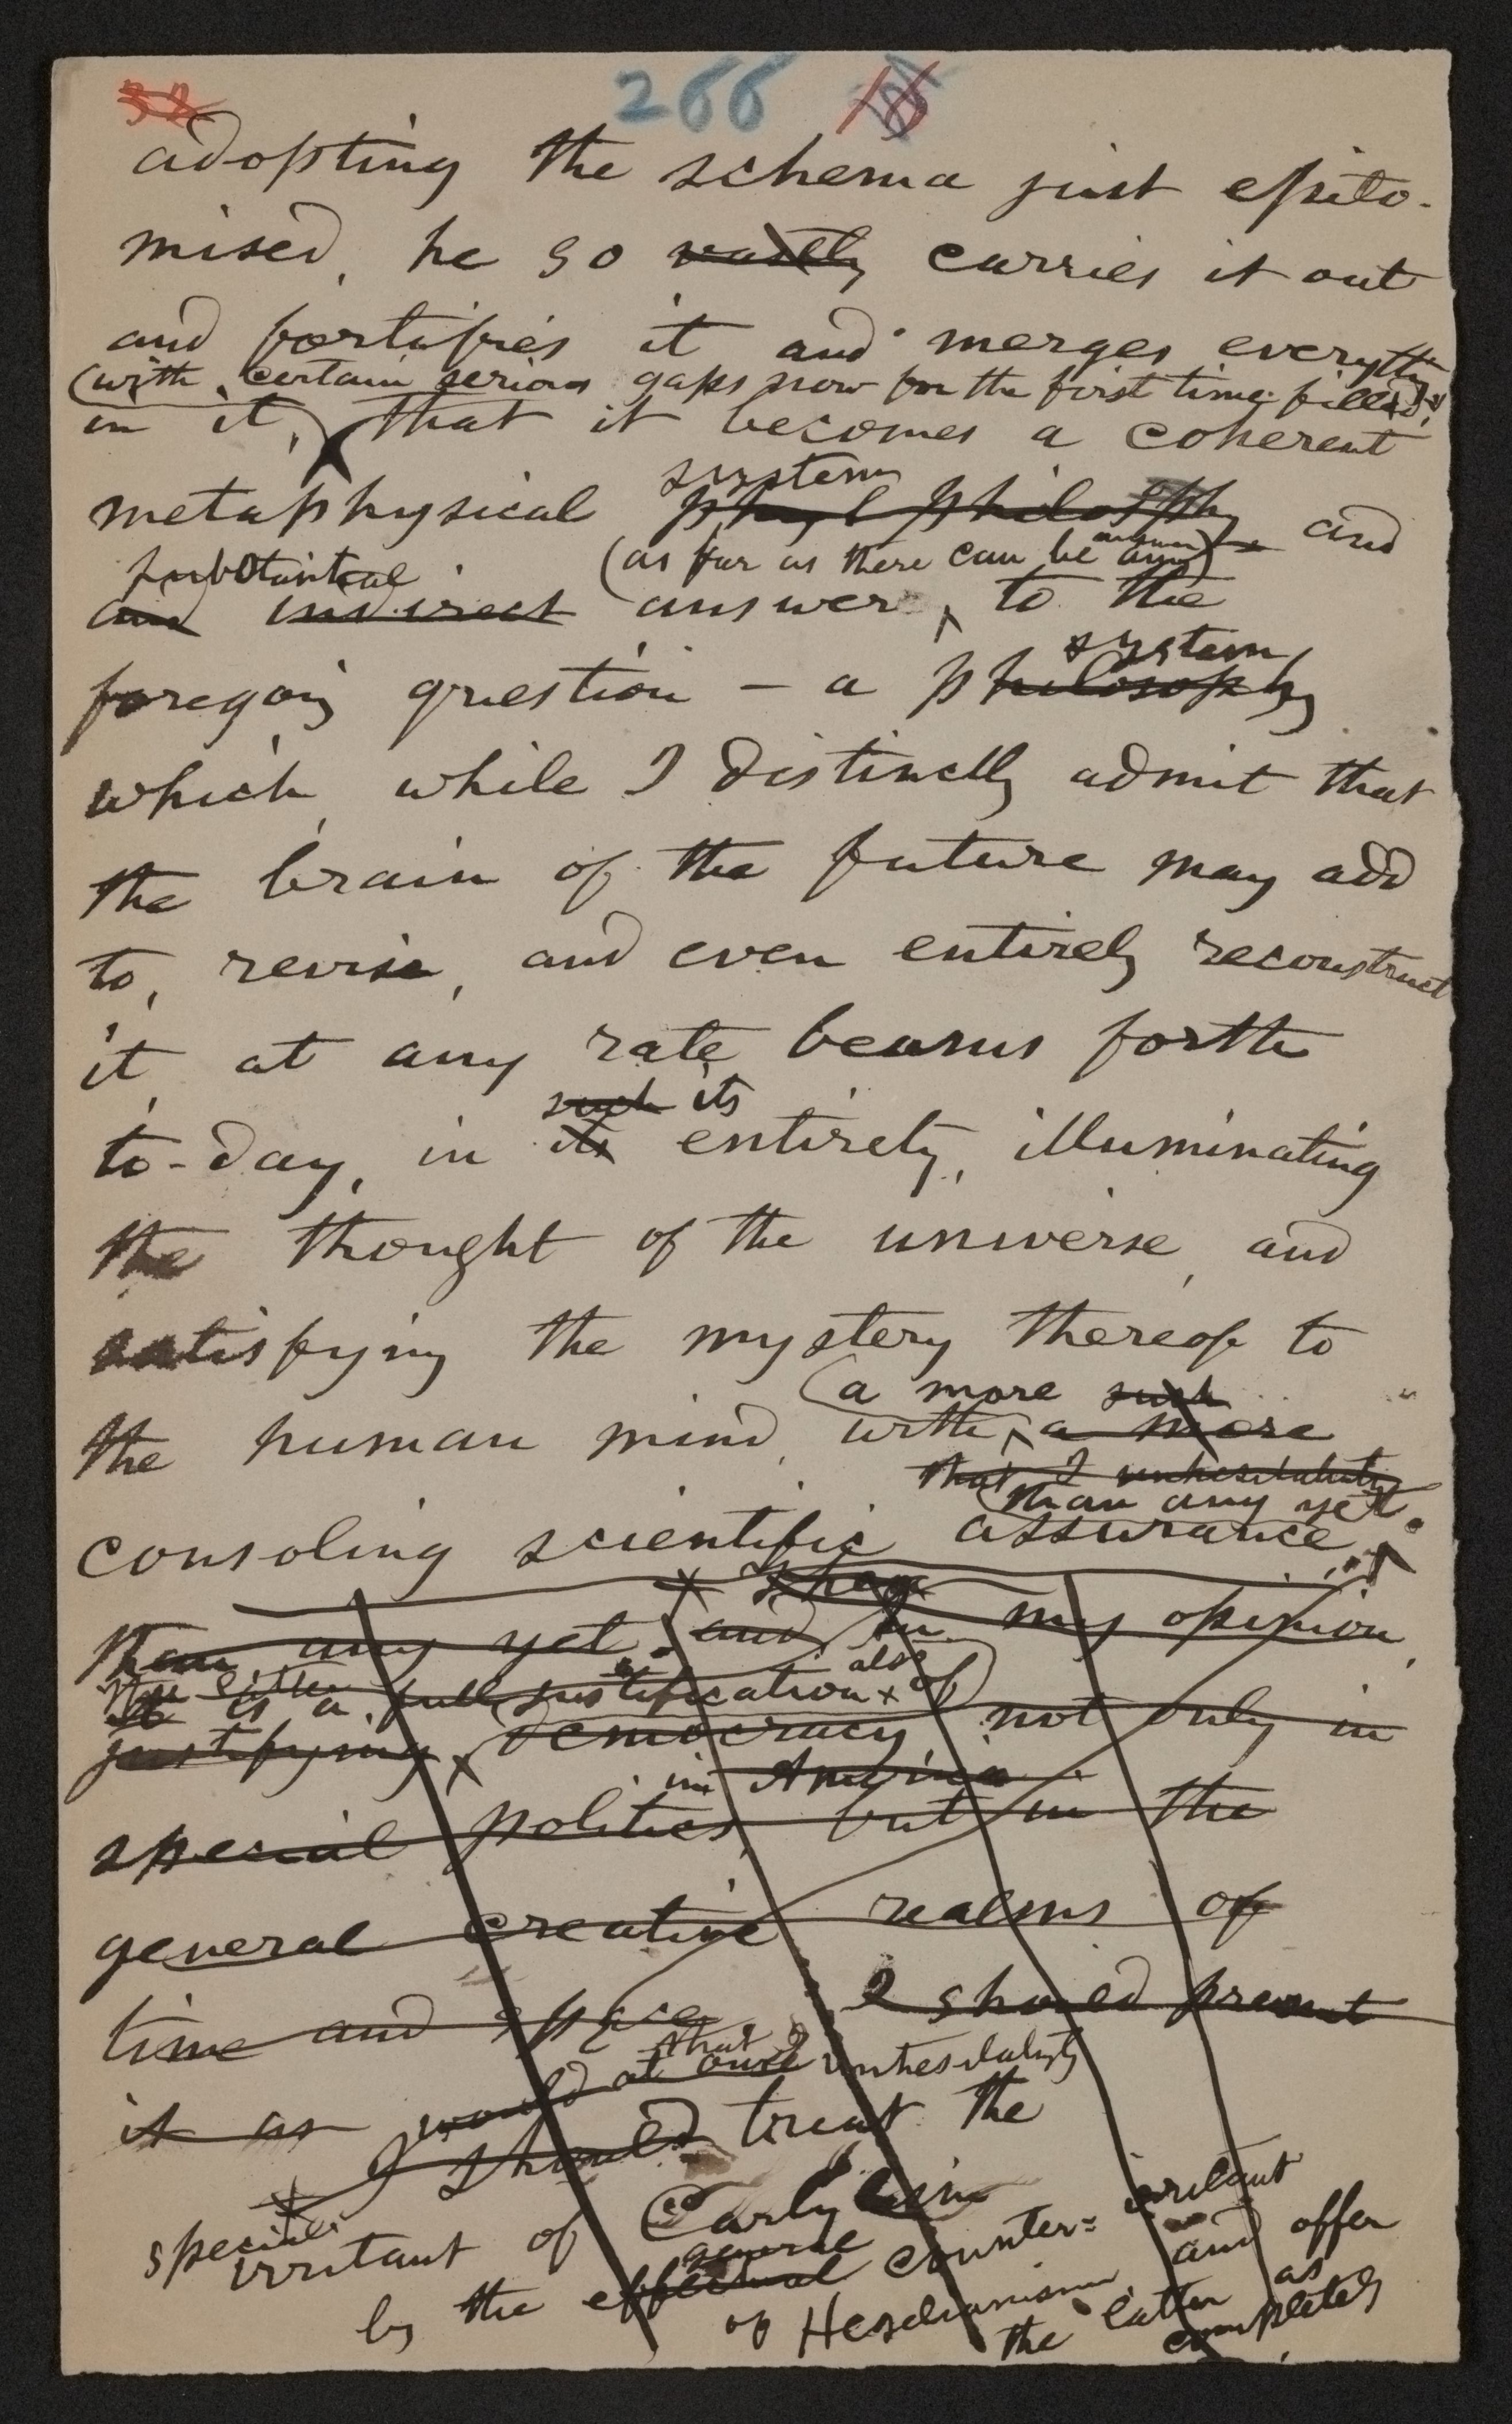 32 266 15
adopting the schema just epito-
mised, he so vastly carries it out
and fortifies it and merges everything
(with certain serious gaps now for the first time filled,
in it, that it becomes a coherent
system
metaphysical phil philosophy and
substantial (as far as there can be any answer)
and indirect answer to the
system
foregoing question – a philosophy
which, while I distinctly admit that
the brain of the future may add
to, revise, and even entirely reconstruct
it at any rate beams forth
such its
to-day, in its entirety, illuminating
the thought of the universe, and
satisfying the mystery thereof to
(a more such
the human mind, with a more
that I unhesitatingly
(than any yet.
consoling scientific assurance
than any yet. and in my opinion,
also
It is a full justification of
justifying Democracy not only in
in America
special politics, but in the
general creative realms of
time and space. I should present
that I
would at once unhesitatingly
it as I should treat the
special
irritant of Carlyleism
general
by the effectual counter-irritant
of Hegelianism, and offer
the latter as
completely